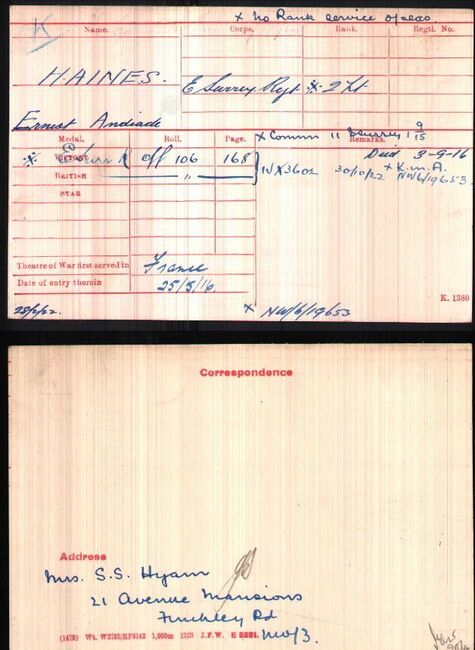 x No Rank service Overseas
K
Name. Corps. Rank. Regtl. No.
HAINES. E Surrey Rgt * 2 Lt
Ernest Andrade
Medal. Roll. Page. Remarks.
* VICTORY Off 106 168
BRITISH —— " ——
STAR
x Comm 11 E Surrey 1 9/15
Died 3-9-16
x K.in.A.
NW/6/19653
IV X3602 30/10/22
Theatre of War first served in France
Date of entry therein 25/5/16.
K. 1380
x NW/6/19653
Correspondence
Address
Mrs. S.S. Hyam
21 Avenue Mansions
Finchley Rd
NW3.
(1475) Wt. W2793/RP5142 1,000m 12/21 J.F.W. E 5281.